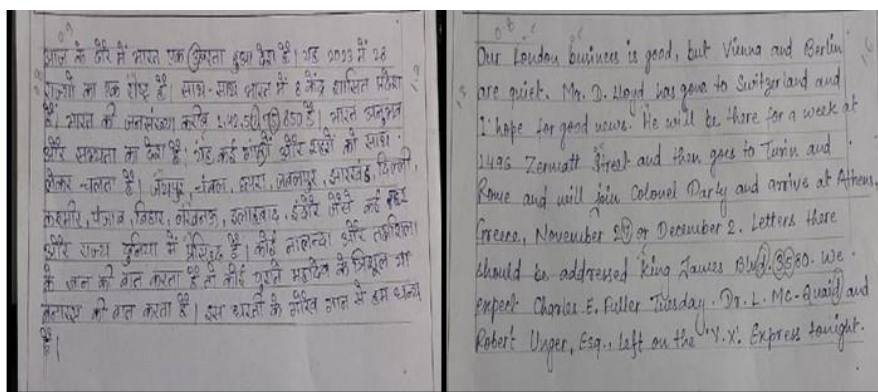 आज के दौर में भारत एक उभरता हुआ देश है। यह 2023 में 28
राज्यों का एक राष्ट्र है। साथ-साथ भारत में 8 केंद्र शासित प्रदेश
हैं। भारत की जनसंख्या करीब
और सभ्यता का देश है। यह कई और शहरों को साथ
लेकर चलता है। जयपुर, चंबल, जबलपुर, झारखंड, दिल्ली,
कश्मीर, पंजाब, बिहार, लखनऊ, इलाहाबाद, इंदौर जैसे कई शहर
और राज्य दुनिया में प्रसिद्ध है। कोई नालन्दा और तक्षशिला
के ज्ञान की बात करता है तो कोई महादेव के त्रिशूल या
बनारस की बात करता है। इस धरती के गौरव गान से हम धन्य
है।
Our London business is good, but Vienna and Berlin
are quiet. Mr. D. Lloyd has gone to Switzerland and
I hope for good news. He will be there for a week at
1496 Zermatt Street and then goes to Turin and
Rome and will join Colonel Parry and arrive at Athens,
Greece, November 29 or December 2. Letters there
should be addressed King James Blvd. 3580. We
expect Charles E. Fuller Tuesday. Dr. L. Mc-Quaid and
Robert Unger, Esq., left on the "Y.X". Express tonight.